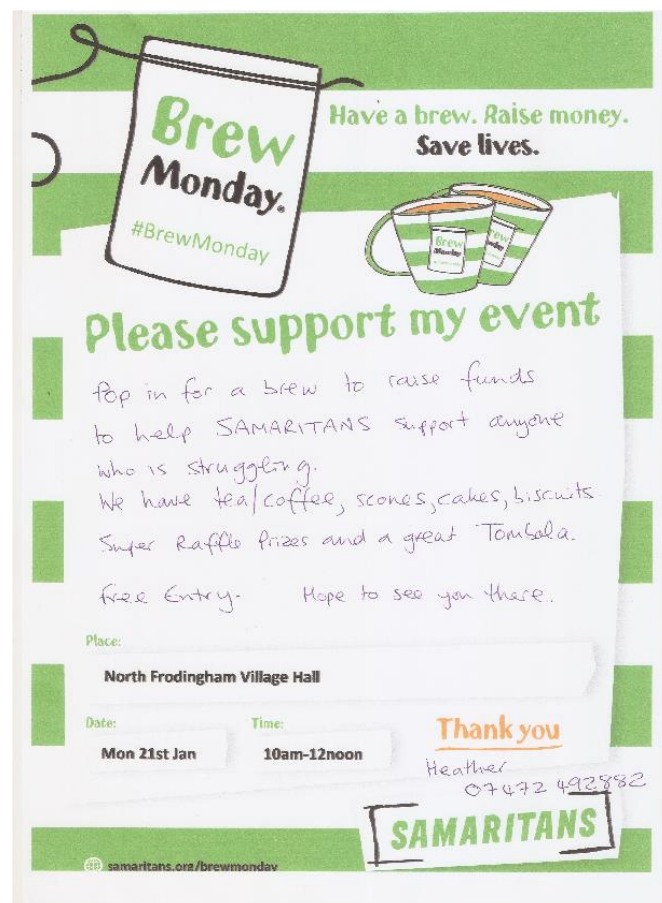 Brew
Monday.
#BrewMonday
Have a brew. Raise money.
Save lives.
Brew
Monday
Brew
Monday
Please support my event
Pop in for a brew to raise funds
to help SAMARITANS support anyone
who is struggling.
We have tea/coffee, scones, cakes, biscuits.
Super Raffle Prizes and a great Tombola.
Free Entry. Hope to see you there..
Place:
North Frodingham Village Hall
Date:
Time:
Mon 21st Jan
10am-12noon
Thank you
Heather
07472 492882
SAMARITANS
samaritans.org/brewmonday